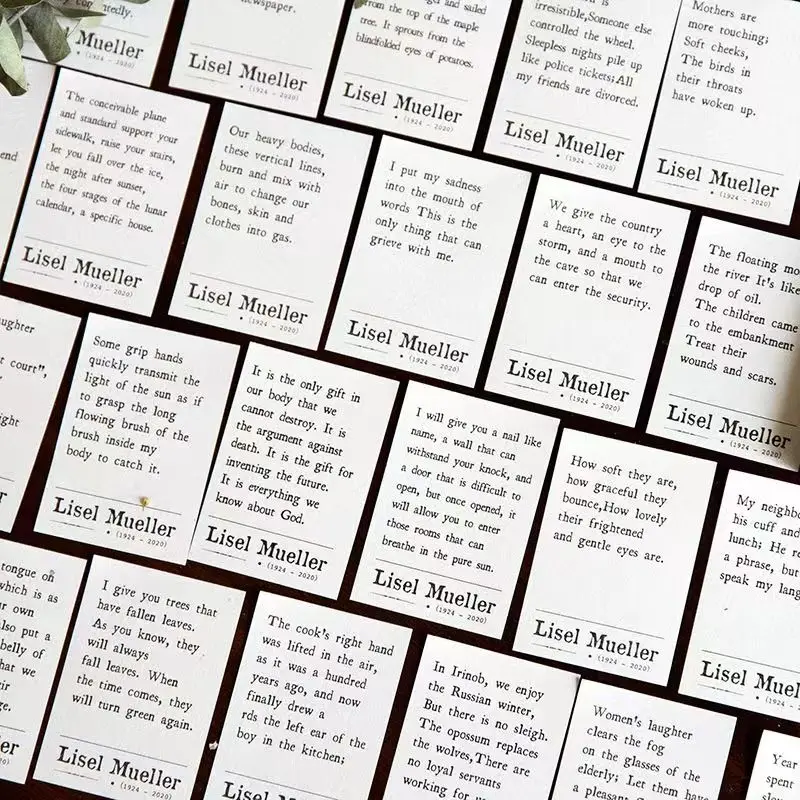 Mueller
(1924 - 2020)
newspaper.
Lisel Mueller
(1924 - 2020)
from the top of the maple
tree. It sprouts from the
blindfolded eyes of potatoes.
Lisel Mueller
(1924 - 2020)
irresistible,Someone else
controlled the wheel.
Sleepless nights pile up
like police tickets;All
my friends are divorced.
Lisel Mueller
(1924 - 2020)
Mothers are
more touching;
Soft cheeks,
The birds in
their throats
have woken up.
Lisel Mueller
(1924 - 2020)
The conceivable plane
and standard support your
sidewalk, raise your stairs,
let you fall over the ice,
the night after sunset,
the four stages of the lunar
calendar, a specific house.
Lisel Mueller
(1924 - 2020)
Our heavy bodies,
these vertical lines,
burn and mix with
air to change our
bones, skin and
clothes into gas.
Lisel Mueller
(1924 - 2020)
I put my sadness
into the mouth of
words This is the
only thing that can
grieve with me.
Lisel Mueller
(1924 - 2020)
We give the country
a heart, an eye to the
storm, and a mouth to
the cave so that we
can enter the security.
Lisel Mueller
(1924 - 2020)
The floating
the river It's like
drop of oil.
The children came
to the embankment
Treat their
wounds and scars.
Lisel Mueller
(1924 - 2020)
court",
Some grip hands
quickly transmit the
light of the sun as if
to grasp the long
flowing brush of the
brush inside my
body to catch it.
Lisel Mueller
(1924 - 2020)
It is the only gift in
our body that we
cannot destroy. It is
the argument against
death. It is the gift for
inventing the future.
It is everything we
know about God.
Lisel Mueller
(1924 - 2020)
I will give you a nail like
name, a wall that can
withstand your knock, and
a door that is difficult to
open, but once opened, it
will allow you to enter
those rooms that can
breathe in the pure sun.
Lisel Mueller
(1924 - 2020)
How soft they are,
how graceful they
bounce,How lovely
their frightened
and gentle eyes are.
Lisel Mueller
(1924 - 2020)
My
his cuff and
lunch; He
a phrase, but
speak my
Lisel
tongue on
which is as
own
also put a
belly of
that we
I give you trees that
have fallen leaves.
As you know, they
will always
fall leaves. When
the time comes, they
will turn green again.
Lisel Mueller
(1924 - 2020)
The cook's right hand
was lifted in the air,
as it was a hundred
years ago, and now
finally drew a
rds the left ear of the
boy in the kitchen;
Lisel Mueller
In Irinob, we enjoy
the Russian winter,
But there is no sleigh.
The opossum replaces
the wolves,There are
no loyal servants
working for
Women's laughter
clears the fog
on the glasses of the
elderly; Let them have
a pleasant
Year
spent